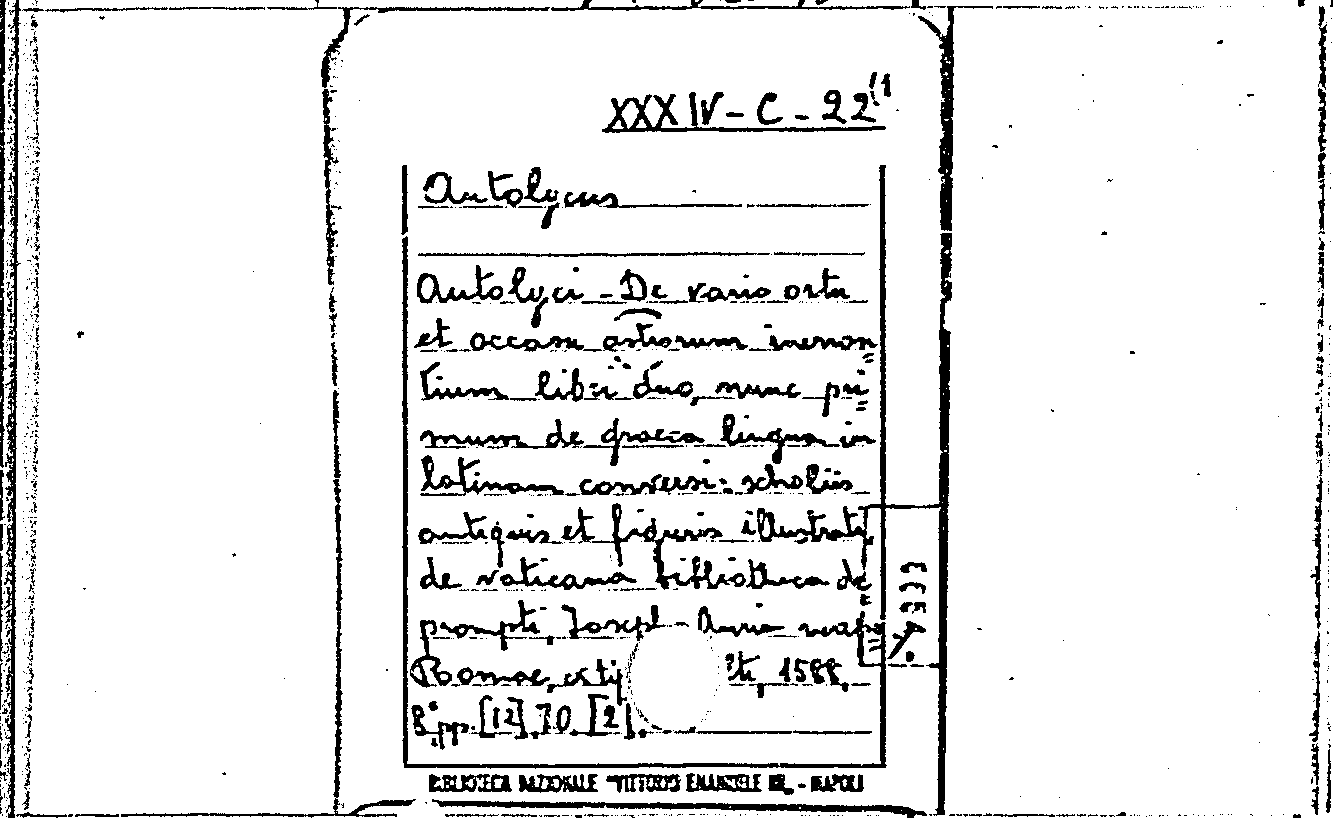 XXXIV - C - 22(1
Autolycus
Autolyci - De vario ortu
et occasu astrorum inerran=
tium libri duo, nunc pri=
mum de graeca lingua in
latinam conversi: scholiis
antiquis et figuris illustrati,
de vaticana bibliotheca de=
prompti, Joseph Auria neap=
Romae, ex ty ti, 1588,
8°, pp. [12], 70, [2].
BIBLIOTECA NAZIONALE "VITTORIO EMANUELE III" - NAPOLI